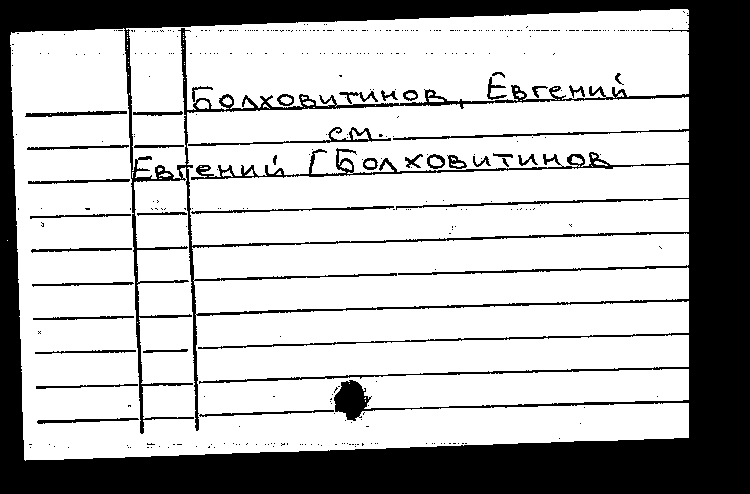 Болховитинов, Евгений
см.
Евгений [Болховитинов